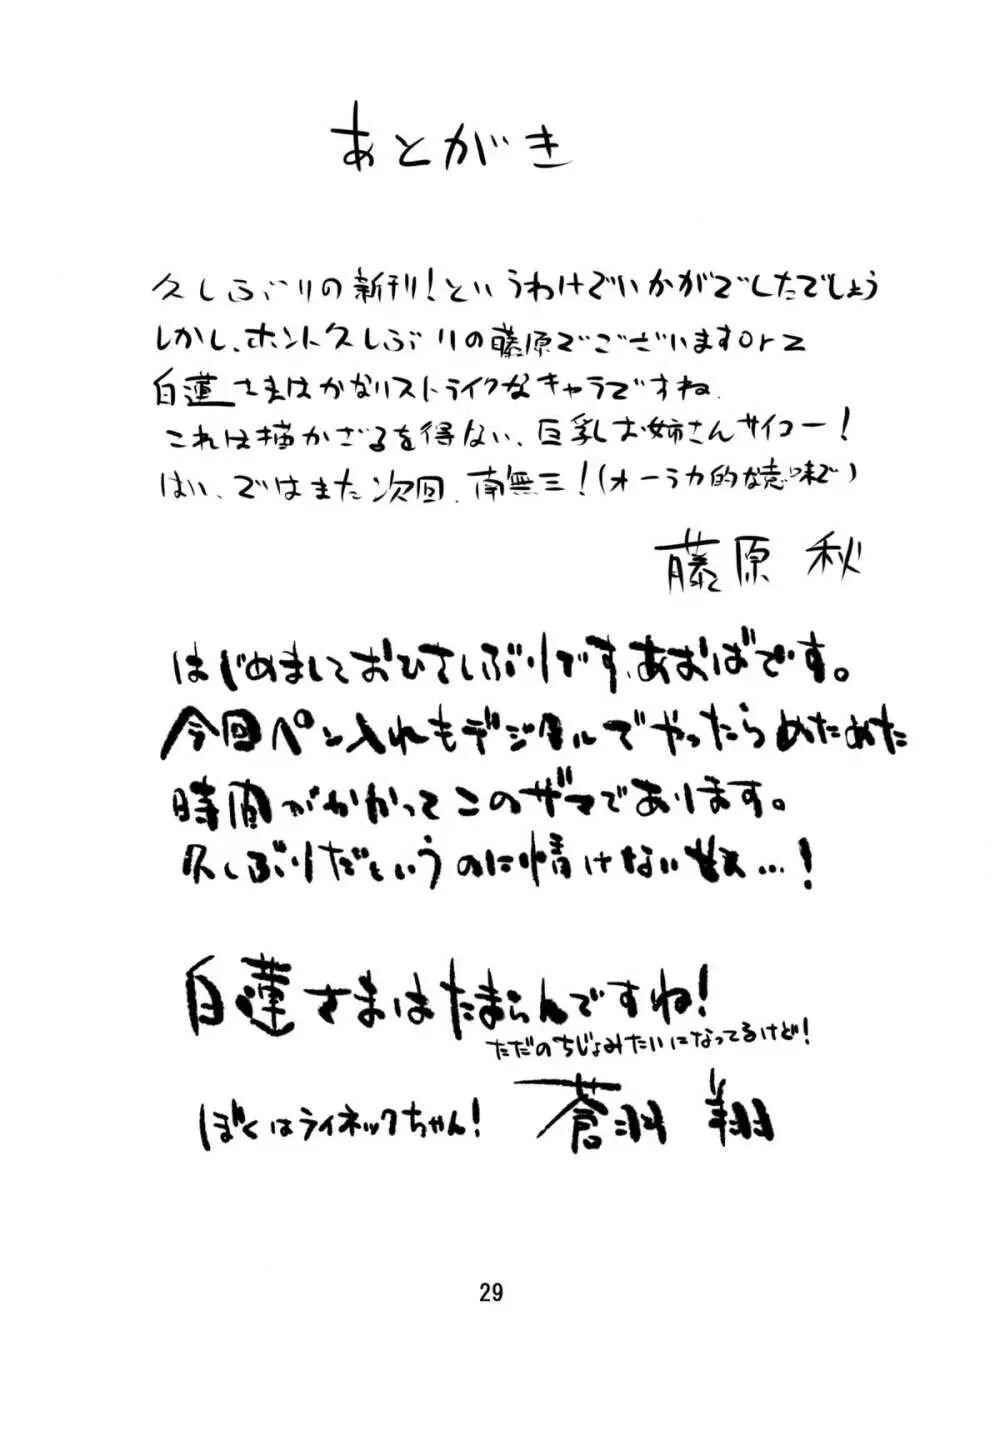 あとがき
久しぶりの新刊!というわけでいかがでしたでしょう
しかし、ホント久しぶりの藤原でございますorz
白蓮さまはかなりストライクなキャラですね、
これは描かざるを得ない、巨乳お姉さんサイコー!
はい、ではまた次回、南無三!(オーラカ的な意味で)
藤原 秋
はじめましておひさしぶりです、あおばです。
今回ペン入れもデジタルでやったらめためた
時間がかかってこのザマであります。
久しぶりだというのに情けない
白蓮さまはたまらんですね!
ただのちじょみたいになってるけど!
ぼくはライネックちゃん!
蒼羽 翔
29